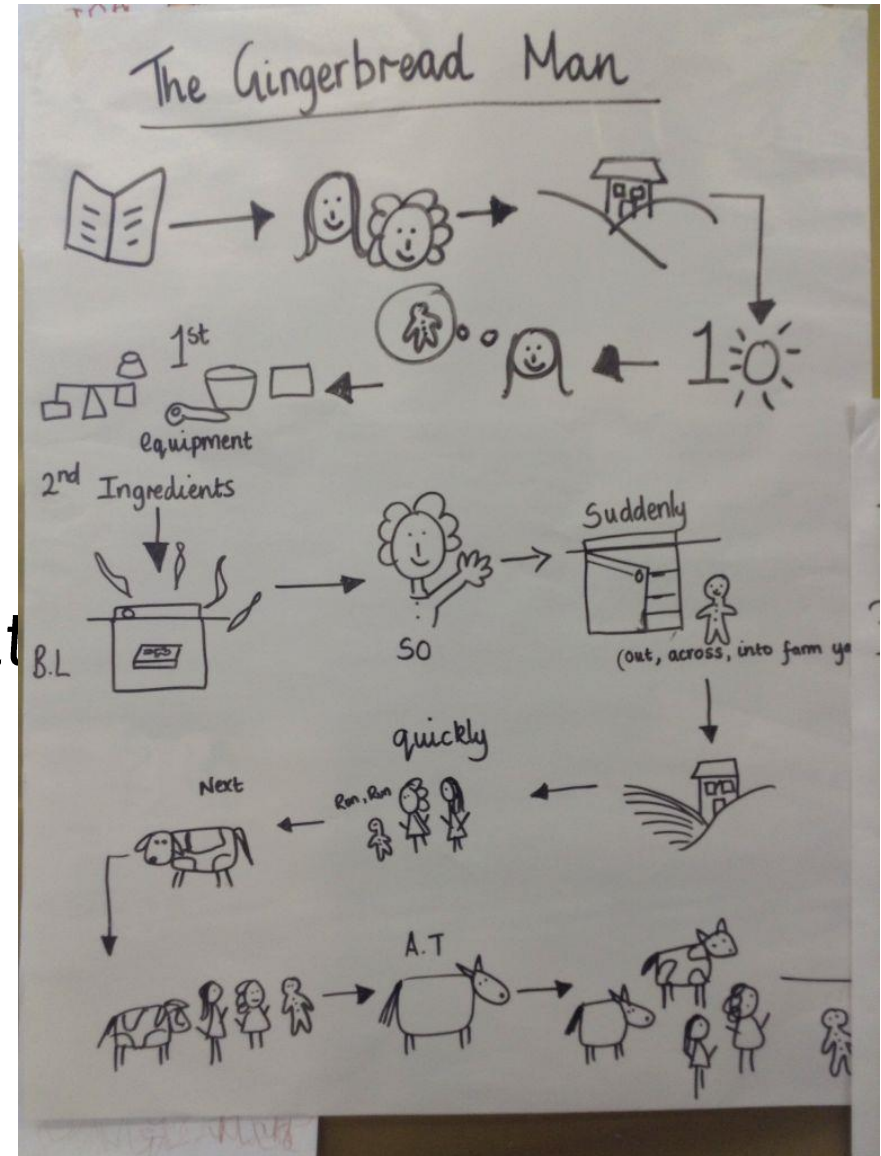 The Gingerbread Man
1st
equipment
2nd Ingredients
Suddenly
B.L
SO
(out, across, into farm ya
quickly
Next
Run, Run
A.T